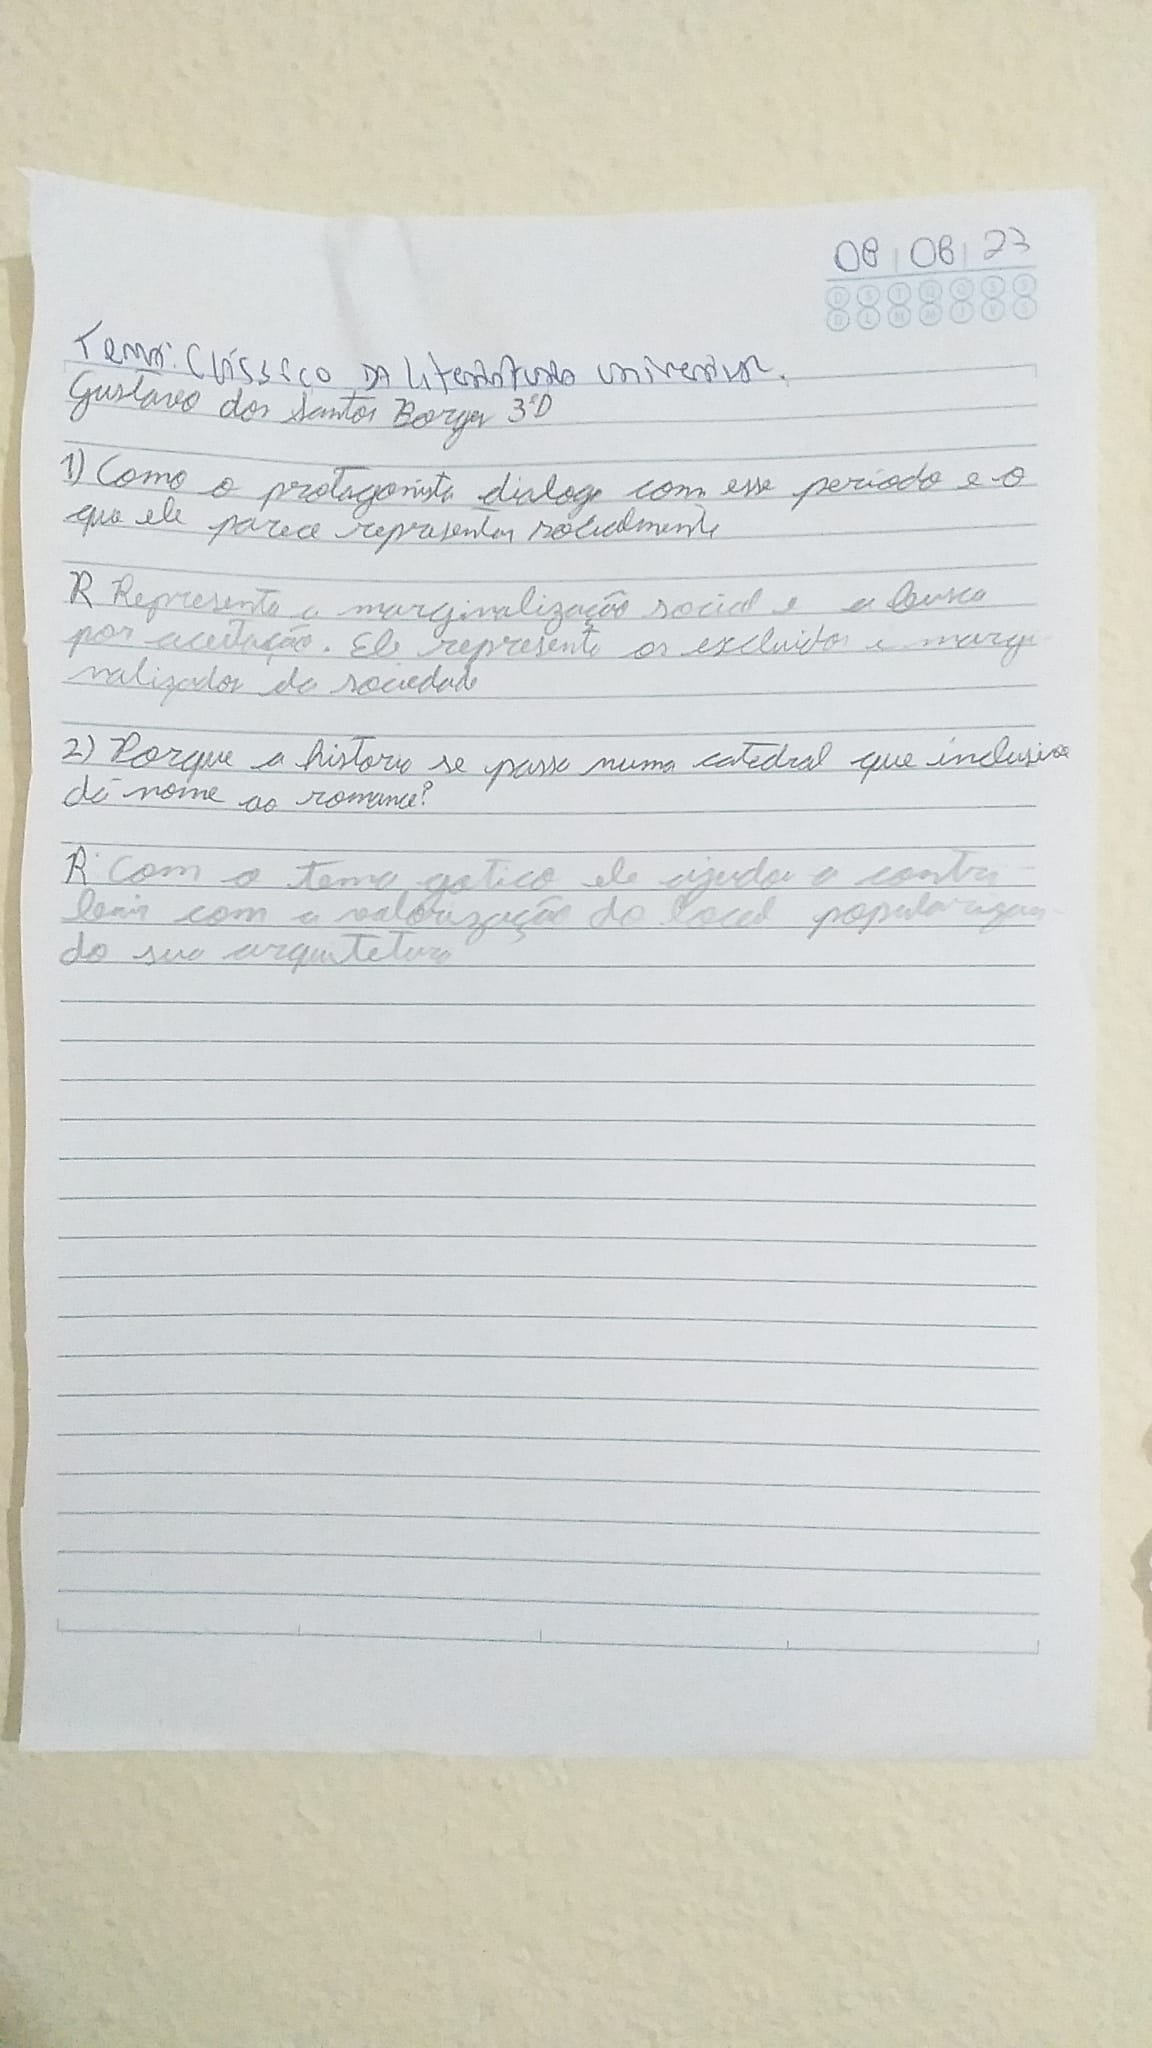 08 | 08 | 23
D S T Q Q S S
D L M M J V S
Tema: Clássico DA Literatura universal.
Gustavo dos Santos Borges 3°D
1) Como o protagonista dialoga com esse periodo e o
que ele parece representar socialmente
R Representa a marginalização social e a busca
por aceitação. Ele representa os excluidos e margi-
nalizados da sociedade
2) Porque a historia se passa numa catedral que inclusive
dá nome ao romance?
R: Com o tema gotico ele ajudou a contri-
buir com a valorização do local popularizan-
do sua arquitetura